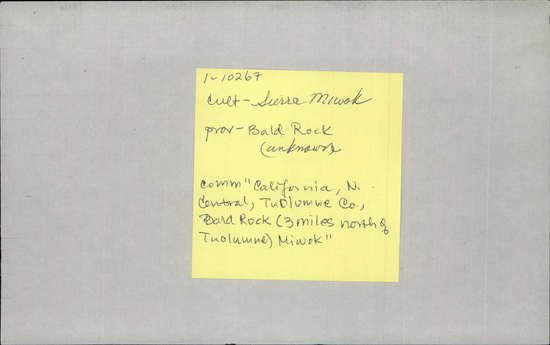 1-10267
cult- Sierra Miwok
prov- Bald Rock
(unknown
comm "California, N.
Central, Tuolumne Co.,
Bald Rock (3 miles north of
Tuolumne) Miwok"